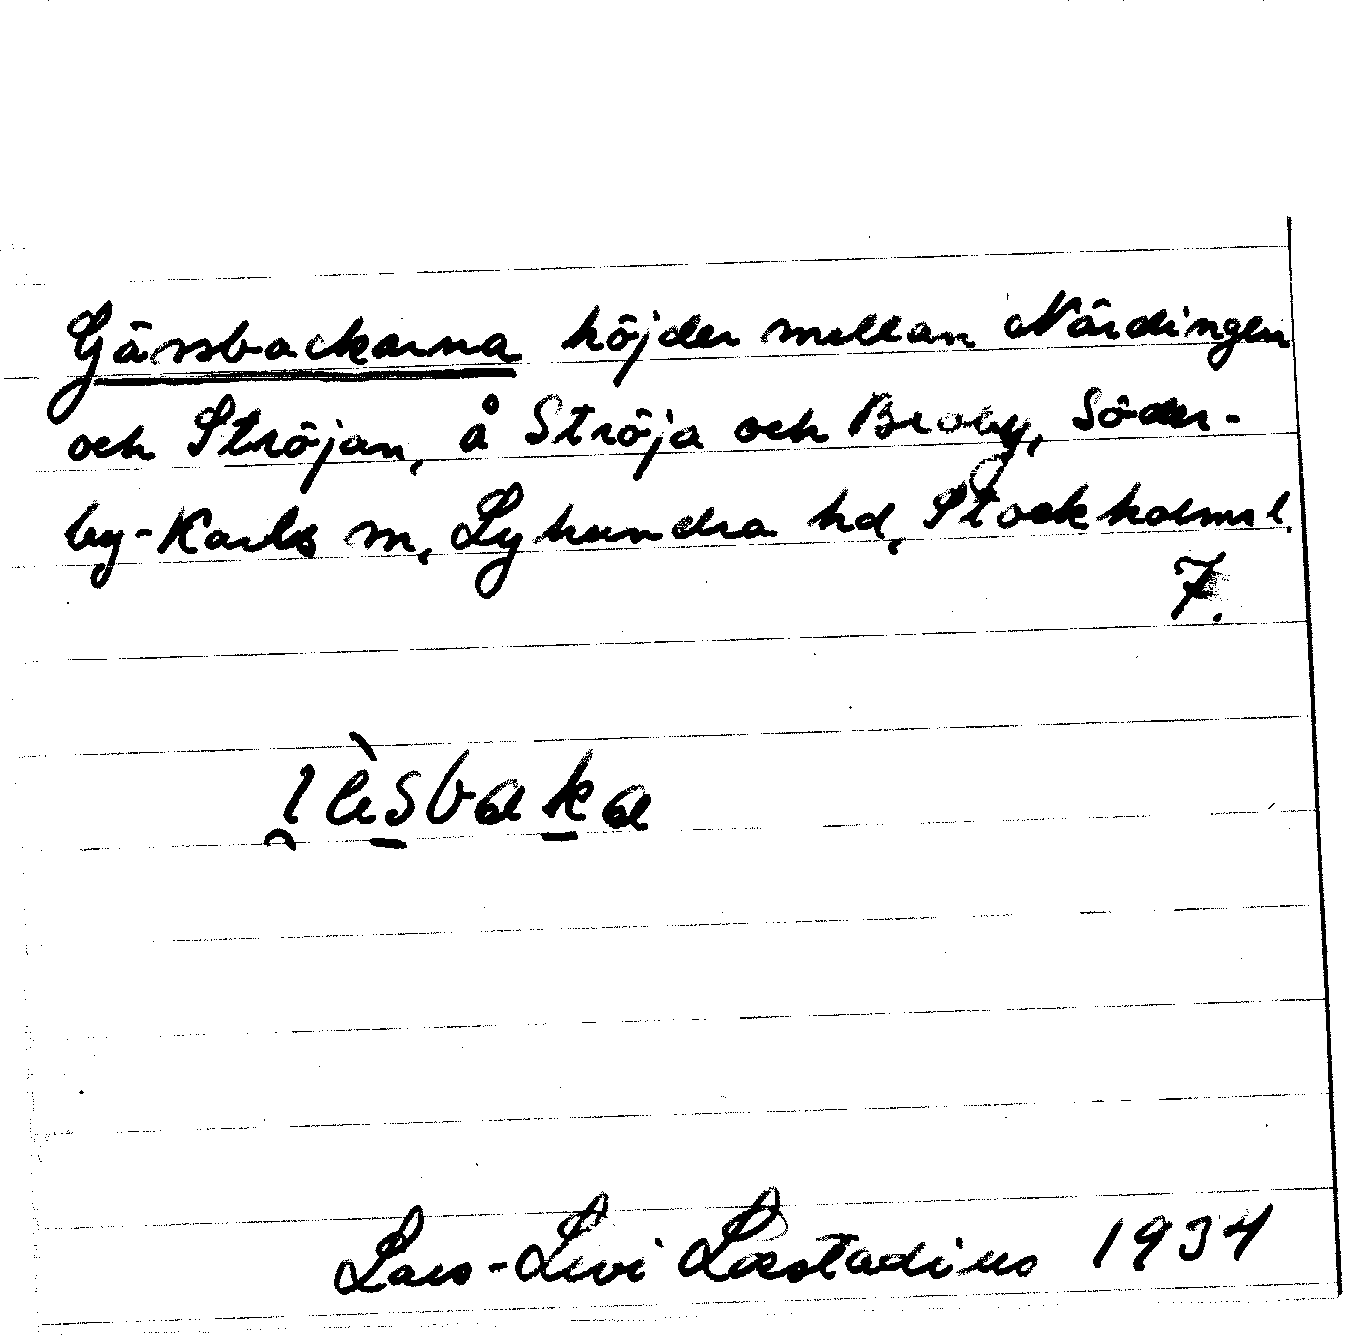 Gässbackarna höjder mellan Närdingen
och Ströjan, å Ströja och Broby, Söder-
by-Karls sn, Lyhundra hd, Stockholms l.
7.
Lars-Levi Læstadius 1934